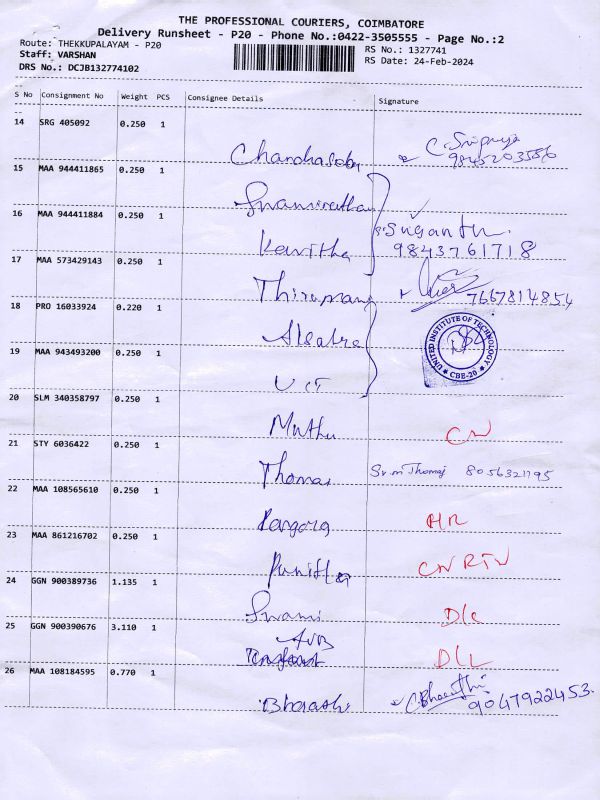 THE PROFESSIONAL COURIERS, COIMBATORE
Delivery Runsheet - P20 - Phone No.:0422-3505555 - Page No.:2
Route: THEKKUPALAYAM - P20
RS No.: 1327741
Staff: VARSHAN
RS Date: 24-Feb-2024
DRS No.: DCJB132774102
S No Consignment No Weight PCS Consignee Details Signature
14 SRG 405092 0.250 1
C. Sripriya
15 MAA 944411865 0.250 1
16 MAA 944411884 0.250 1
Suganthi
Kavitha 9843761718
17 MAA 573429143 0.250 1
7667814854
18 PRO 16033924 0.220 1
UNITED INSTITUTE OF TECHNOLOGY
CBE-20
19 MAA 943493200 0.250 1
UIT
20 SLM 340358797 0.250 1
Muthu CN
21 STY 6036422 0.250 1
Thomas
22 MAA 108565610 0.250 1
HR
23 MAA 861216702 0.250 1
Punitha CN RTN
24 GGN 900389736 1.135 1
Swami D/L
25 GGN 900390676 3.110 1
AVB
D/L
26 MAA 108184595 0.770 1
C. Bharathi
Bharathi 9047922453